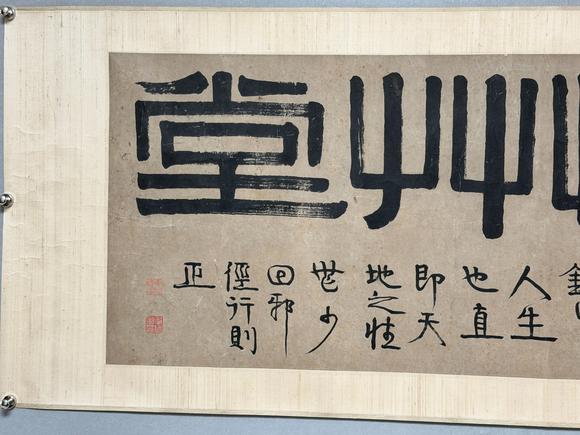 艸堂
人生
也直
即天
地之性
無少
回邪
徑行則
正